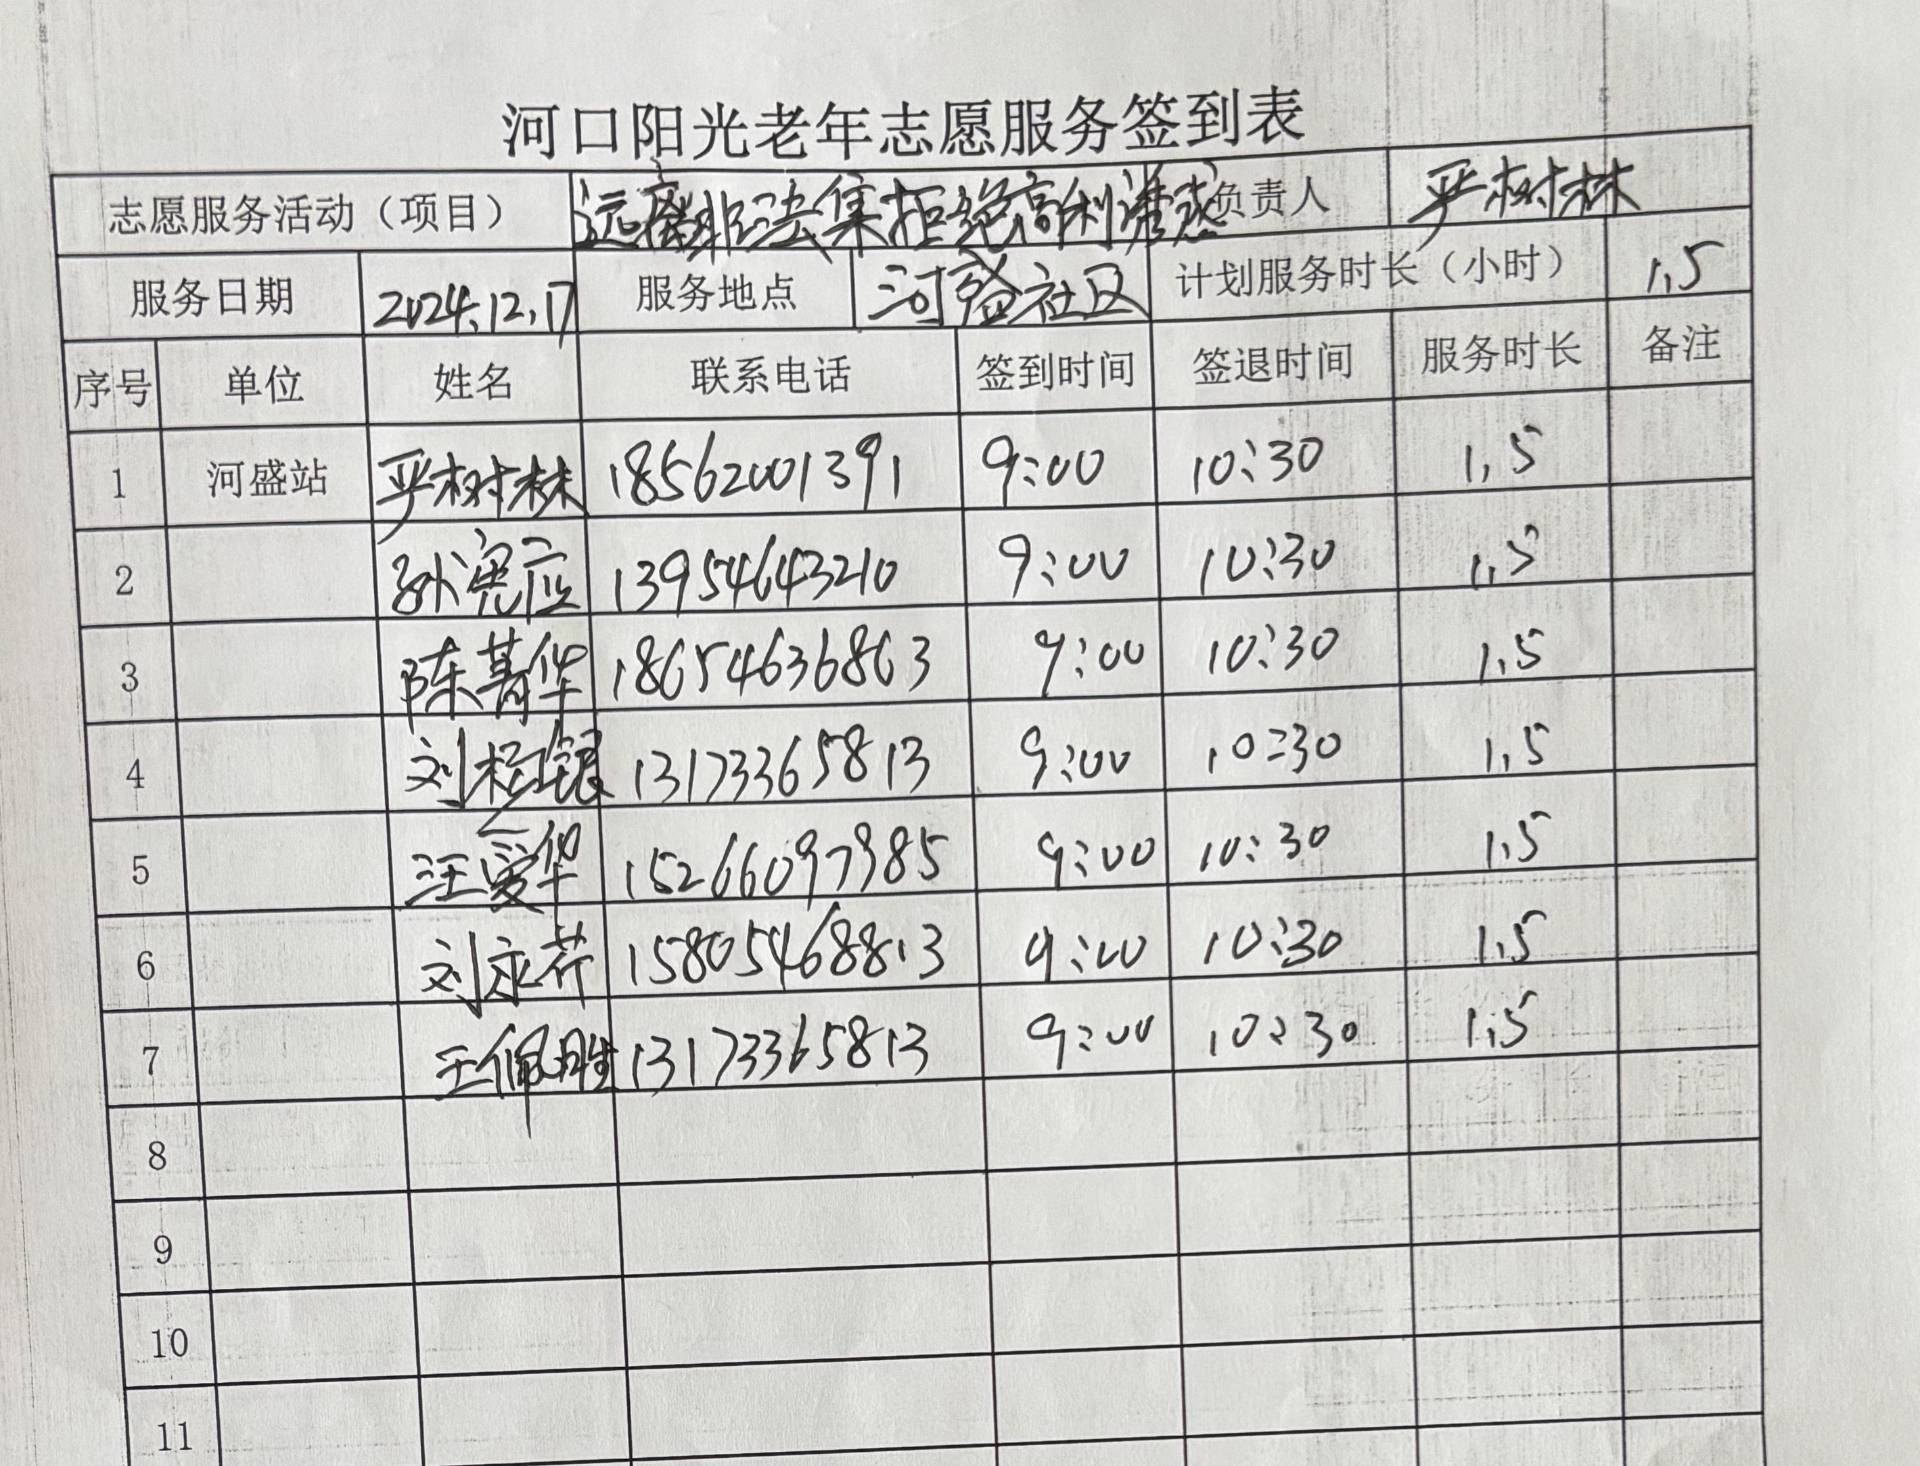 河口阳光老年志愿服务签到表
志愿服务活动（项目） 远离非法集拒绝高利诱惑 负责人 严树林
服务日期 2024.12.17 服务地点 河盛社区 计划服务时长（小时） 1.5
序号 单位 姓名 联系电话 签到时间 签退时间 服务时长 备注
1 河盛站 严树林 18562001391 9:00 10:30 1.5
2 孙宪应 13954643210 9:00 10:30 1.5
3 陈菁华 18654636863 9:00 10:30 1.5
4 刘桂银 13173365813 9:00 10:30 1.5
5 汪爱华 15266097985 9:00 10:30 1.5
6 刘永芹 15805468813 9:00 10:30 1.5
7 王佩胜 13173365813 9:00 10:30 1.5
8
9
10
11